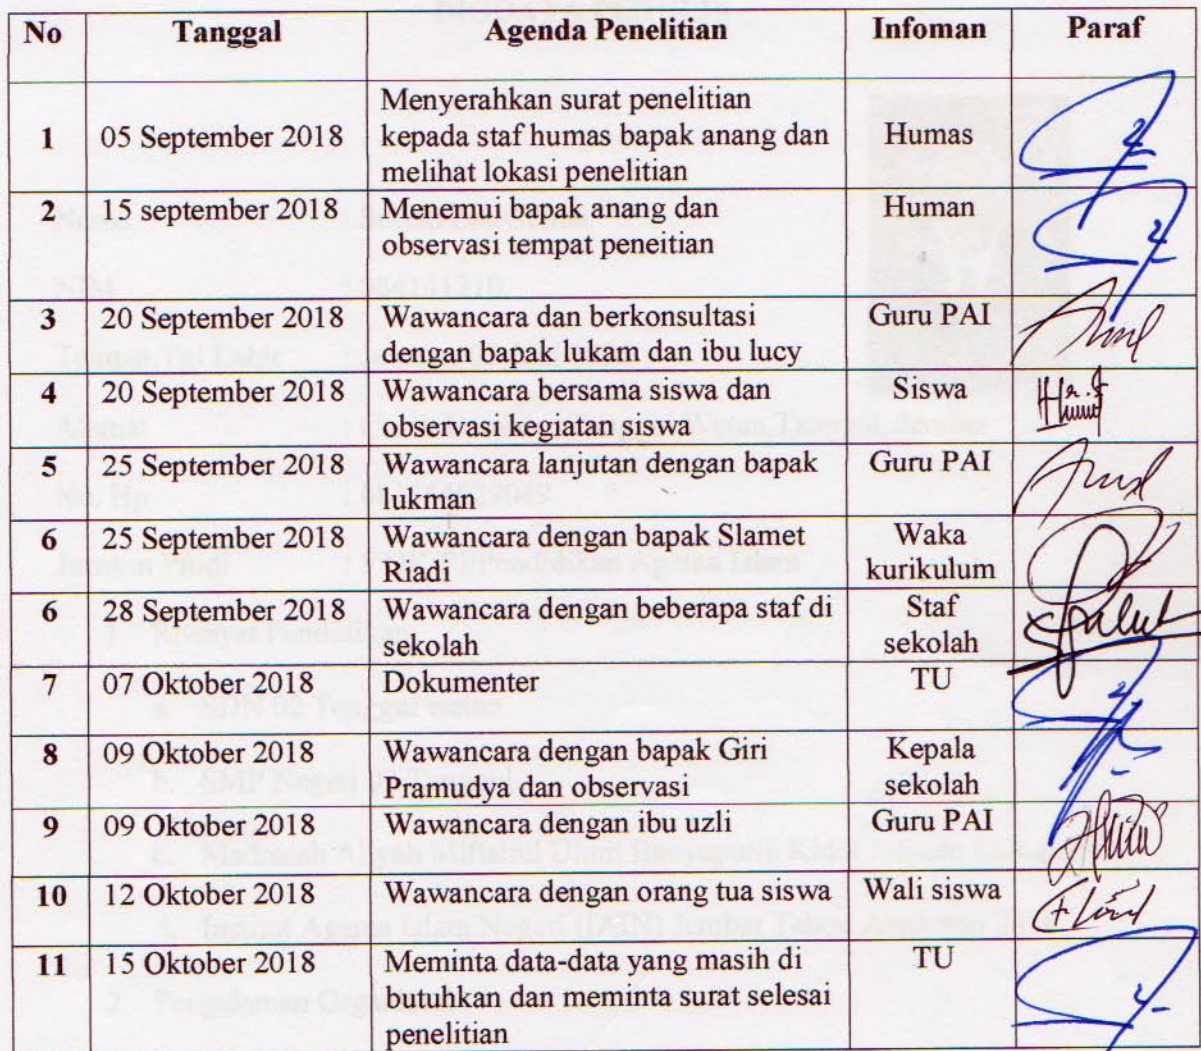 No Tanggal Agenda Penelitian Infoman Paraf
1 05 September 2018 Menyerahkan surat penelitian kepada staf humas bapak anang dan melihat lokasi penelitian Humas
2 15 september 2018 Menemui bapak anang dan observasi tempat peneitian Human
3 20 September 2018 Wawancara dan berkonsultasi dengan bapak lukam dan ibu lucy Guru PAI
4 20 September 2018 Wawancara bersama siswa dan observasi kegiatan siswa Siswa
5 25 September 2018 Wawancara lanjutan dengan bapak lukman Guru PAI
6 25 September 2018 Wawancara dengan bapak Slamet Riadi Waka kurikulum
6 28 September 2018 Wawancara dengan beberapa staf di sekolah Staf sekolah
7 07 Oktober 2018 Dokumenter TU
8 09 Oktober 2018 Wawancara dengan bapak Giri Pramudya dan observasi Kepala sekolah
9 09 Oktober 2018 Wawancara dengan ibu uzli Guru PAI
10 12 Oktober 2018 Wawancara dengan orang tua siswa Wali siswa
11 15 Oktober 2018 Meminta data-data yang masih di butuhkan dan meminta surat selesai penelitian TU